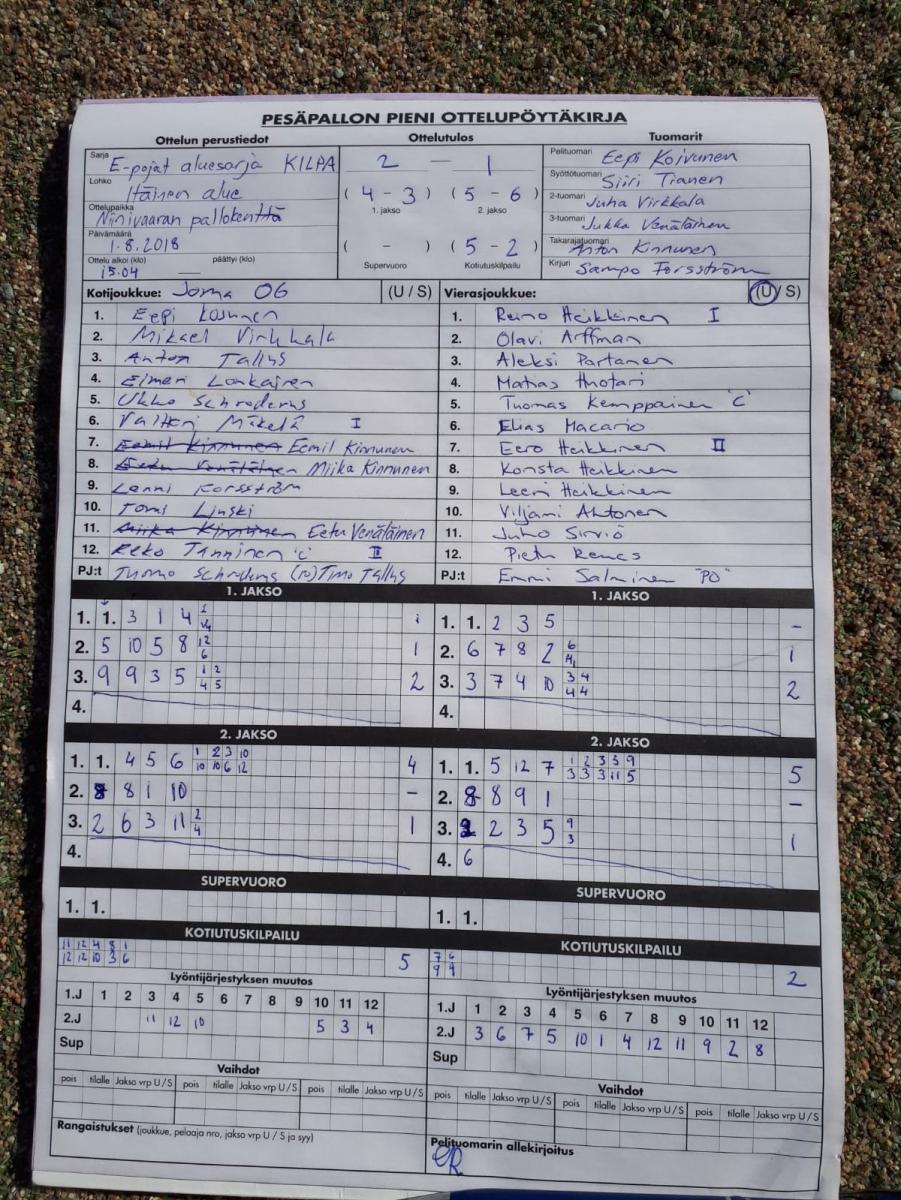 PESÄPALLON PIENI OTTELUPÖYTÄKIRJA
Ottelun perustiedot
Sarja E-pojat aluesarja KILPA
Lohko Itäinen alue
Ottelupaikka Niinivaaran pallokenttä
Päivämäärä 1.8.2018
Ottelu alkoi (klo) päättyi (klo)
15.04 —
Ottelutulos
2 — 1
(4 - 3) (5 - 6)
1. jakso 2. jakso
( - ) (5 - 2)
Supervuoro Kotiutuskilpailu
Tuomarit
Pelituomari Eepi Koivunen
Syöttötuomari Siiri Tianen
2-tuomari Juha Virkkala
3-tuomari Jukka Venäläinen
Takarajatuomari Anton Kinnunen
Kirjuri Sampo Forsström
Kotijoukkue: Joma 06 (U / S)
1. Eepi
2. Mikael Virkkala
3. Anton Tallus
4. Elmeri Lonkainen
5. Ukko Schroderus
6. Valtteri Mäkelä I
7. Eemil Kinnunen Eemil Kinnunen
8. Eetu Venäläinen Miika Kinnunen
9. Lenni Forsström
10. Tomi Linski
11. Miika Kinnunen Eetu Venäläinen
12. Eeko Tanninen 'C' II
PJ:t Tuomo Schroderus Timo Tallus
Vierasjoukkue: (U / S)
1. Reino Heikkinen I
2. Olavi Arffman
3. Aleksi Partanen
4. Matias Huotari
5. Tuomas Kemppainen 'C'
6. Elias Macario
7. Eero Heikkinen II
8. Konsta Heikkinen
9. Leevi Heikkinen
10. Viljami Ahtonen
11. Juho Sirviö
12. Pietu Remes
PJ:t Emmi Salminen "PO"
1. JAKSO
1. 1. 3 1 4 1
2. 5 10 5 8 12 6 1
3. 9 9 3 5 1 2 4 5 2
4.
1. JAKSO
1. 1. 2 3 5 -
2. 6 7 8 2 6 1
3. 3 7 4 10 3 4 4 4 2
4.
2. JAKSO
1. 1. 4 5 6 1 2 3 10 10 10 6 12 4
2. 8 8 1 10 -
3. 2 6 3 11 2 4 1
4.
2. JAKSO
1. 1. 5 12 7 1 2 3 3 9 3 3 3 11 5 5
2. 8 8 9 1 -
3. 2 2 3 5 9 3 1
4. 6
SUPERVUORO
1. 1.
SUPERVUORO
1. 1.
KOTIUTUSKILPAILU
11 12 4 8 1
12 12 10 3 6 5
KOTIUTUSKILPAILU
7 6
9 9 2
Lyöntijärjestyksen muutos
1.J 1 2 3 4 5 6 7 8 9 10 11 12
2.J 11 12 10 5 3 4
Sup
Lyöntijärjestyksen muutos
1.J 1 2 3 4 5 6 7 8 9 10 11 12
2.J 3 6 7 5 10 1 4 12 11 9 2 8
Sup
Vaihdot
pois tilalle Jakso vrp U / S pois tilalle Jakso vrp U / S pois tilalle Jakso vrp U / S
Vaihdot
pois tilalle Jakso vrp U / S pois tilalle Jakso vrp U / S pois tilalle Jakso vrp U / S
Rangaistukset (joukkue, pelaaja nro, jakso vrp U / S ja syy)
Pelituomarin allekirjoitus